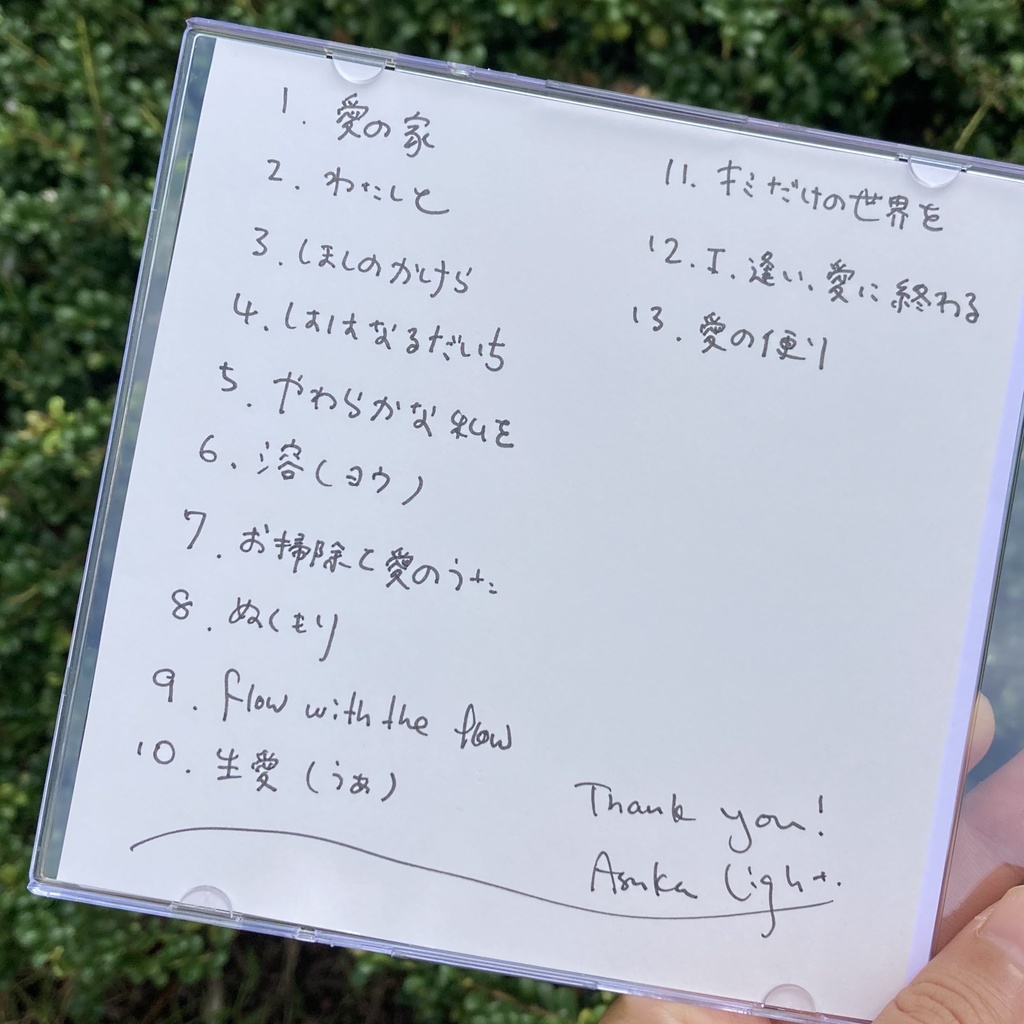 1. 愛の家
2. わたしと
3. ほしのかけら
4. ははなるだいち
5. やわらかな私を
6. 溶(ヨウ)
7. お掃除と愛のうた
8. ぬくもり
9. flow with the flow
10. 生愛(うあ)
11. キミだけの世界を
12. I. 逢い、愛に終わる
13. 愛の便り
Thank you!
Asuka Light.